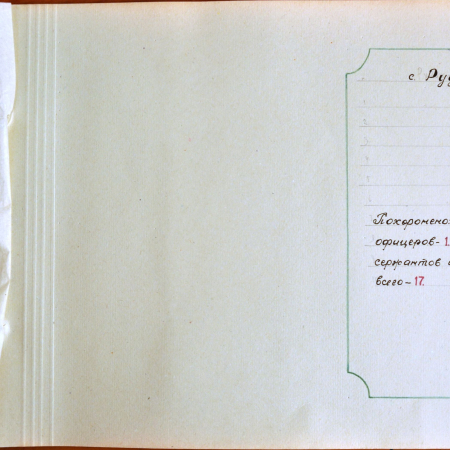 с. Руд
Похоронено:
офицеров - 1.
сержантов
всего - 17.